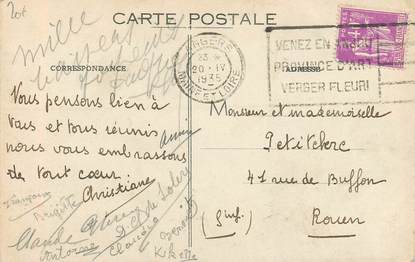 20f
CARTE POSTALE
mille
CORRESPONDANCE
ANGERS
23
20 - IV
1935
MAINE ET LOIRE
VENEZ EN ANJOU
PROVINCE D'ART
VERGER FLEURI
ADRESSE
Vous pensons bien à
vais et tous réunis
nous vous embrassons
de tout cœur.
Annie
Christiane
François
Brigitte
Claude
Antoine
Claudie
Benoit
Kikette
Monsieur et mademoiselle
Petitclerc
41 rue de Buffon
(Sinf.) Rouen